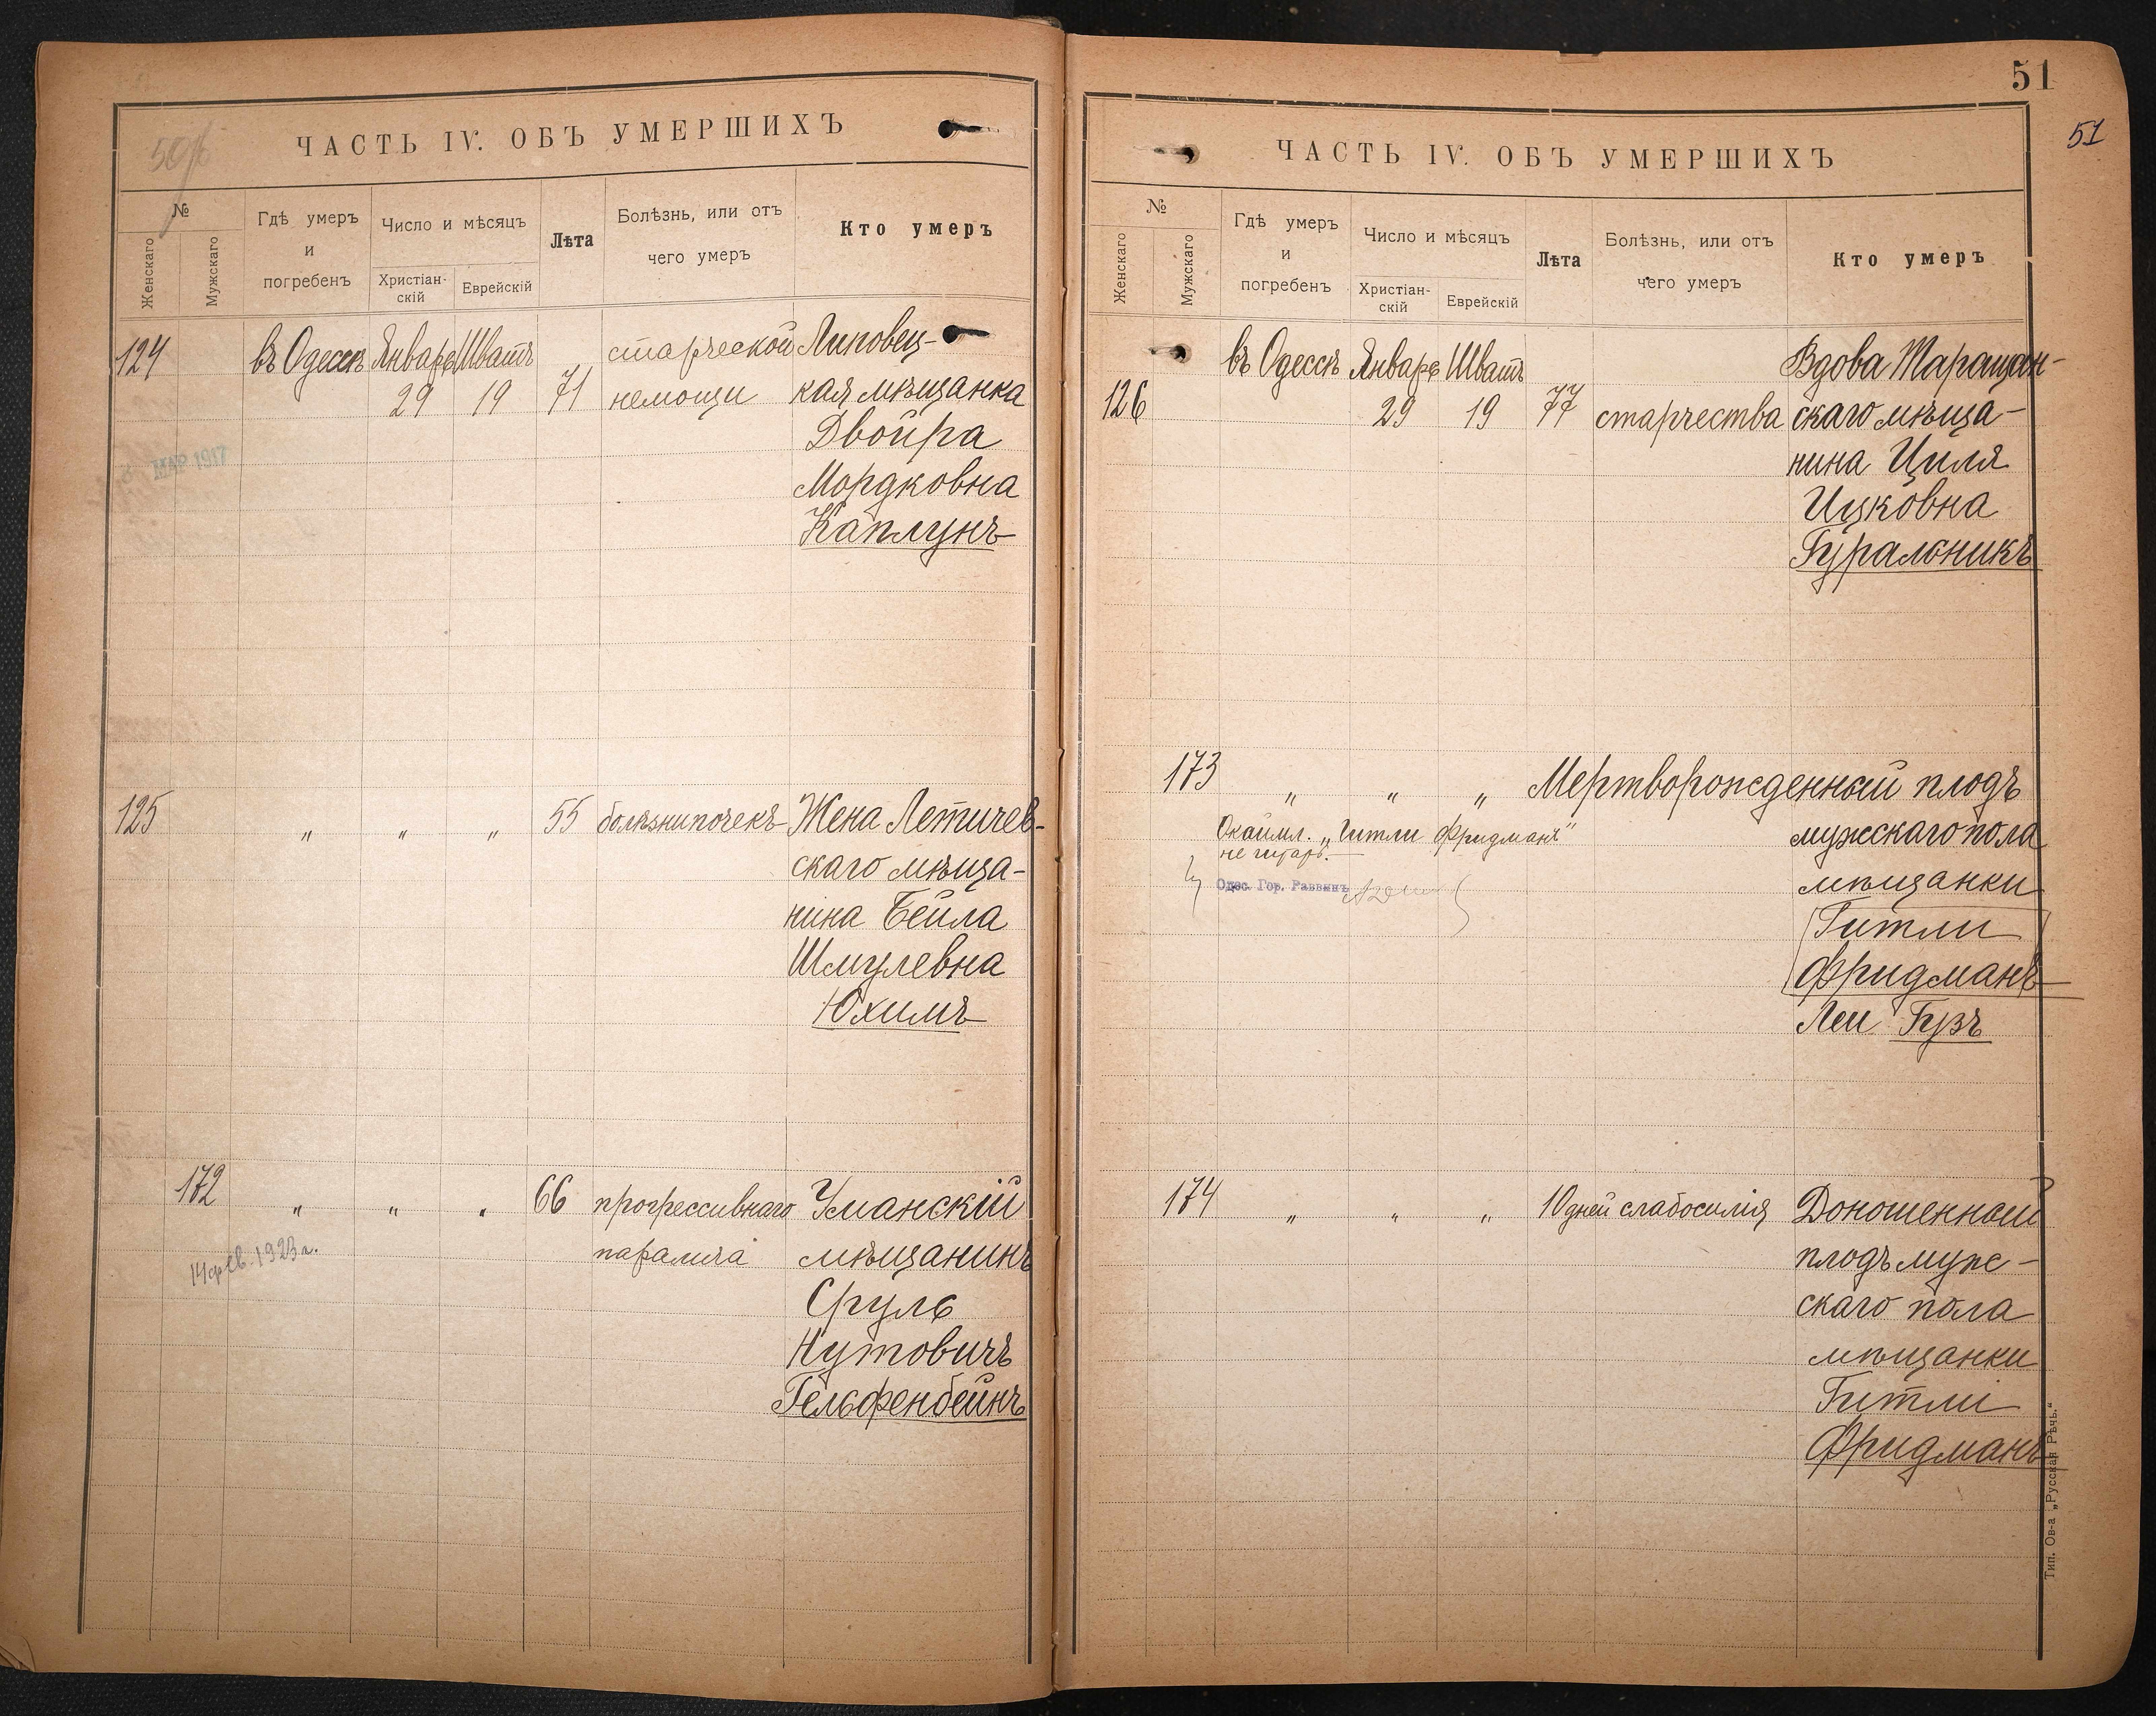 ЧАСТЬ IV. ОБЪ УМЕРШИХЪ
№
Женскаго
Мужскаго
Гдѣ умеръ
и
погребенъ
Число и мѣсяцъ
Христіан-
скій
Еврейскій
Лѣта
Болѣзнь, или отъ
чего умеръ
Кто умеръ
124 въ Одессѣ Январь Шватъ старческой Липовец-
29 19 71 немощи кая мѣщанка
Двойра
Мордковна
Каплунъ
МАР 1917
125 „ „ „ 55 болѣзни почекъ Жена Летичев-
скаго мѣща-
нина Бейла
Шмулевна
Юхимъ
172 „ „ „ 66 прогрессивнаго Уманскій
14 фев. 1923 г. паралича мѣщанинъ
Сруль
Нутовичъ
Гельфенбейнъ
51
51
ЧАСТЬ IV. ОБЪ УМЕРШИХЪ
№
Женскаго
Мужскаго
Гдѣ умеръ
и
погребенъ
Число и мѣсяцъ
Христіан-
скій
Еврейскій
Лѣта
Болѣзнь, или отъ
чего умеръ
Кто умеръ
въ Одессѣ Январь Шватъ Вдова Таращан-
126 29 19 77 старчества скаго мѣща-
нина Циля
Ицковна
Гуральникъ
173 „ „ „ Мертворожденный плодъ
Окаймл. „Гитли Фридманъ“ мужскаго пола
не читать.
Одес. Гор. Раввинъ мѣщанки
Гитли
Фридманъ
Леи Гузъ
174 „ „ „ 10 дней слабосилія Доношенный
плодъ муж-
скаго пола
мѣщанки
Гитли
Фридманъ
Тип. Ов-а „Русская Рѣчь.“